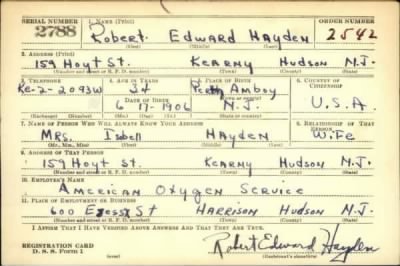 SERIAL NUMBER 1. NAME (Print) ORDER NUMBER
2788 Robert Edward Hayden 2542
(First) (Middle) (Last)
2. ADDRESS (Print)
159 Hoyt St. Kearny Hudson N.J.
(Number and street or R. F. D. number) (Town) (County) (State)
3. TELEPHONE 4. AGE IN YEARS 5. PLACE OF BIRTH 6. COUNTRY OF CITIZENSHIP
Ke-2-2093W 34 Perth Amboy
DATE OF BIRTH
6 17 1906 N.J. U.S.A.
(Exchange) (Number) (Mo.) (Day) (Yr.) (State or country)
7. NAME OF PERSON WHO WILL ALWAYS KNOW YOUR ADDRESS 8. RELATIONSHIP OF THAT PERSON
Mrs. Isbell Hayden Wife
(Mr., Mrs., Miss) (First) (Middle) (Last)
9. ADDRESS OF THAT PERSON
159 Hoyt St Kearny Hudson N.J.
(Number and street or R. F. D. number) (Town) (County) (State)
10. EMPLOYER'S NAME
American Oxygen Service
11. PLACE OF EMPLOYMENT OR BUSINESS
600 St Harrison Hudson N.J.
(Number and street or R. F. D. number) (Town) (County) (State)
I AFFIRM THAT I HAVE VERIFIED ABOVE ANSWERS AND THAT THEY ARE TRUE.
REGISTRATION CARD
D. S. S. FORM 1 (over) Robert Edward Hayden
(Registrant's signature)